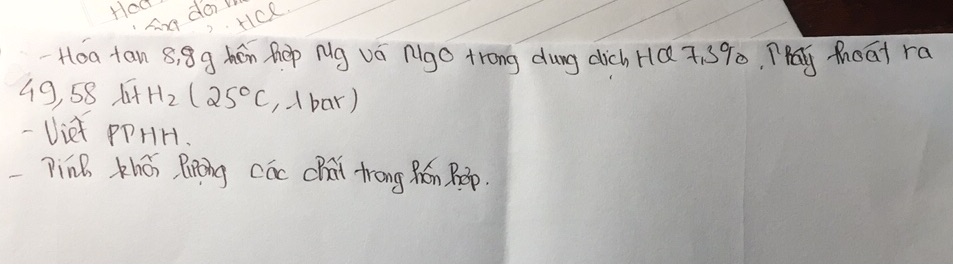 Hoa
dd HCl
- Hóa tan 8,8g hỗn hợp Mg và MgO trong dung dịch HCl 7,3%. Thấy thoát ra
49,58 lít H2 (25°C, 1 bar)
- Viết PTHH.
- Tính khối lượng các chất trong hỗn hợp.